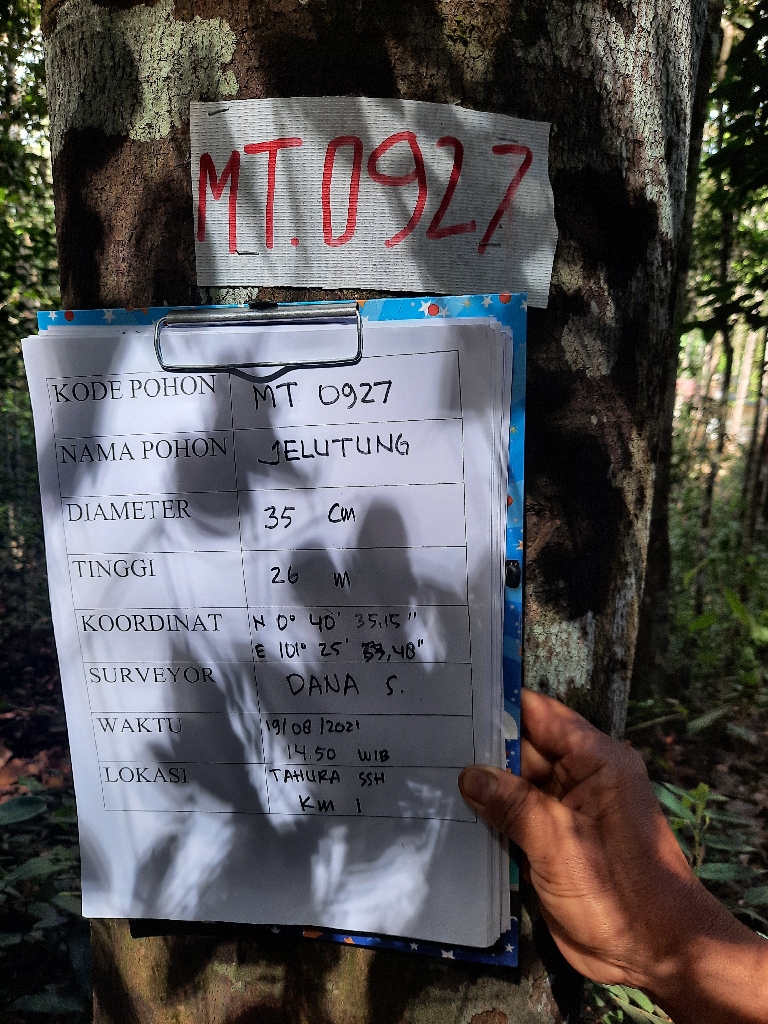 MT.0927
KODE POHON MT 0927
NAMA POHON JELUTUNG
DIAMETER 35 Cm
TINGGI 26 m
KOORDINAT N 0° 40' 35.15"
E 101° 25' 33,48"
SURVEYOR DANA S.
WAKTU 19/08/2021
14.50 WIB
LOKASI TAHURA SSH
Km 1